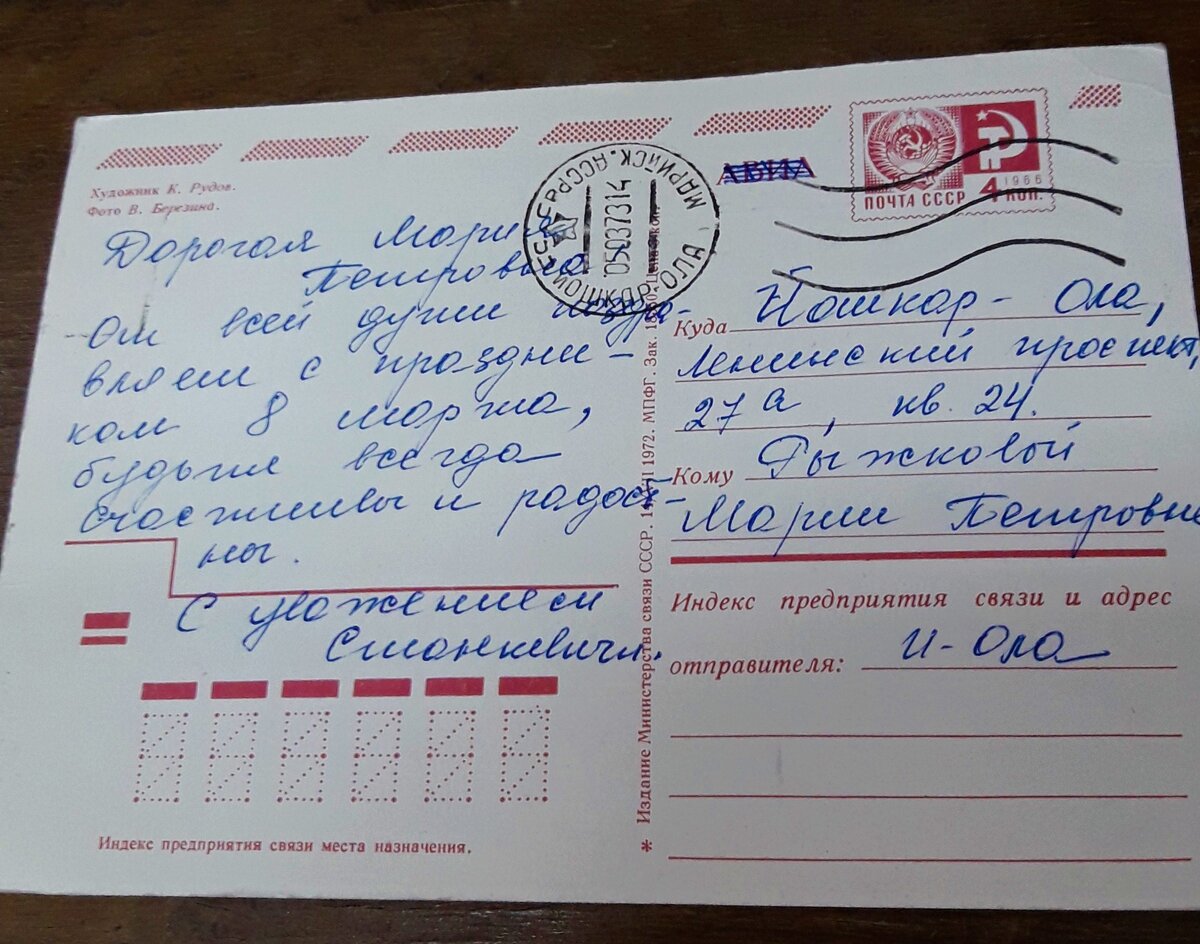 Художник К. Рудов.
Фото В. Березина.
Дорогая Мария
Петровна
От всей души поздра-
вляем с праздни-
ком 8 марта,
будьте всегда
счастливы и радост-
ны.
С уважением
Станкевичи.
Индекс предприятия связи места назначения.
МАРИЙСК. АССР
ЙОШКАР-ОЛА
05037314
АВИА
ПОЧТА СССР 4 КОП.
1966
Куда Йошкар-Ола,
Ленинский проспект,
27а, кв. 24.
Кому Рыжковой
Марии Петровне
Индекс предприятия связи и адрес
отправителя: И-Ола
* Издание Министерства связи СССР. 1972. МПФГ. Зак.